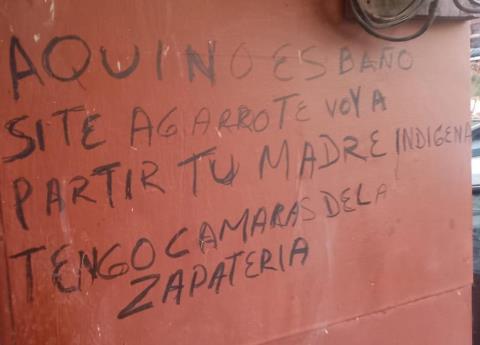 AQUI NO ES BAÑO
SI TE AGARRO TE VOY A
PARTIR TU MADRE INDIGENA
TENGO CAMARAS DE LA
ZAPATERIA